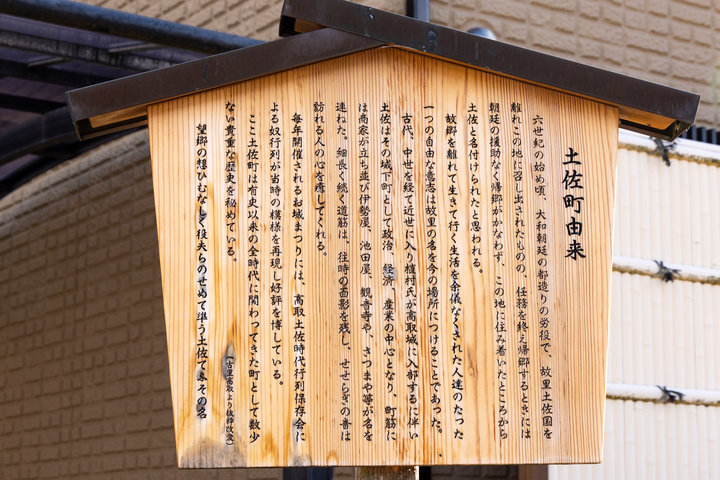 土佐町由来
六世紀の始め頃、大和朝廷の都造りの労役で、故里土佐国を
離れこの地に召し出されたものの、任務を終え帰郷するときには
朝廷の援助なく帰郷がかなわず、この地に住み着いたところから
土佐と名付けられたと思われる。
故郷を離れて生きて行く生活を余儀なくされた人達のたった
一つの自由な意志は故里の名を今の場所につけることであった。
古代、中世を経て近世に入り植村氏が高取城に入部するに伴い
土佐はその城下町として政治、経済、産業の中心となり、町筋に
は商家が立ち並び伊勢屋、池田屋、観音寺や、さつまや等が名を
連ねた。細長く続く道筋は、往時の面影を残し、せせらぎの音は
訪れる人の心を癒してくれる。
毎年開催されるお城まつりには、高取土佐時代行列保存会に
よる奴行列が当時の模様を再現し好評を博している。
ここ土佐町は有史以来の全時代に関わってきた町として数少
ない貴重な歴史を秘めている。
(古里高取より抜粋改変)
望郷の想ひむなしく役夫らのせめて準う土佐てふその名